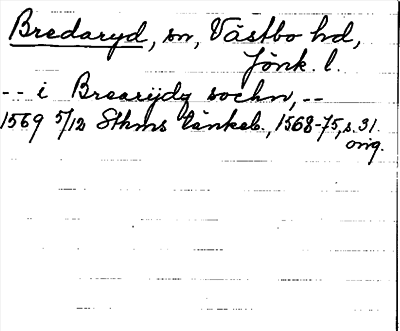 Bredaryd, sn, Västbo hd,
Jönk. l.
-- i Brearijdz sochn, --
1569 5/12 Sthms tänkeb., 1568-75, s. 31.
orig.